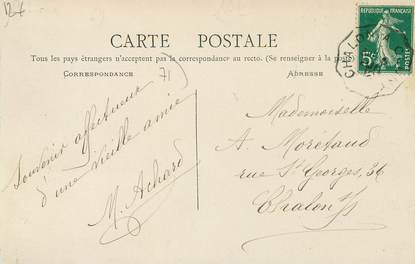 CARTE POSTALE
Tous les pays étrangers n'acceptent pas la correspondance au recto. (Se renseigner à la poste
CORRESPONDANCE
71
ADRESSE
Souvenir affectueux
d'une vieille amie
M. Achard
Mademoiselle
A. Morétaud
rue St Georges, 36
Chalon s/s
RÉPUBLIQUE FRANÇAISE
5c
POSTES
CHALON